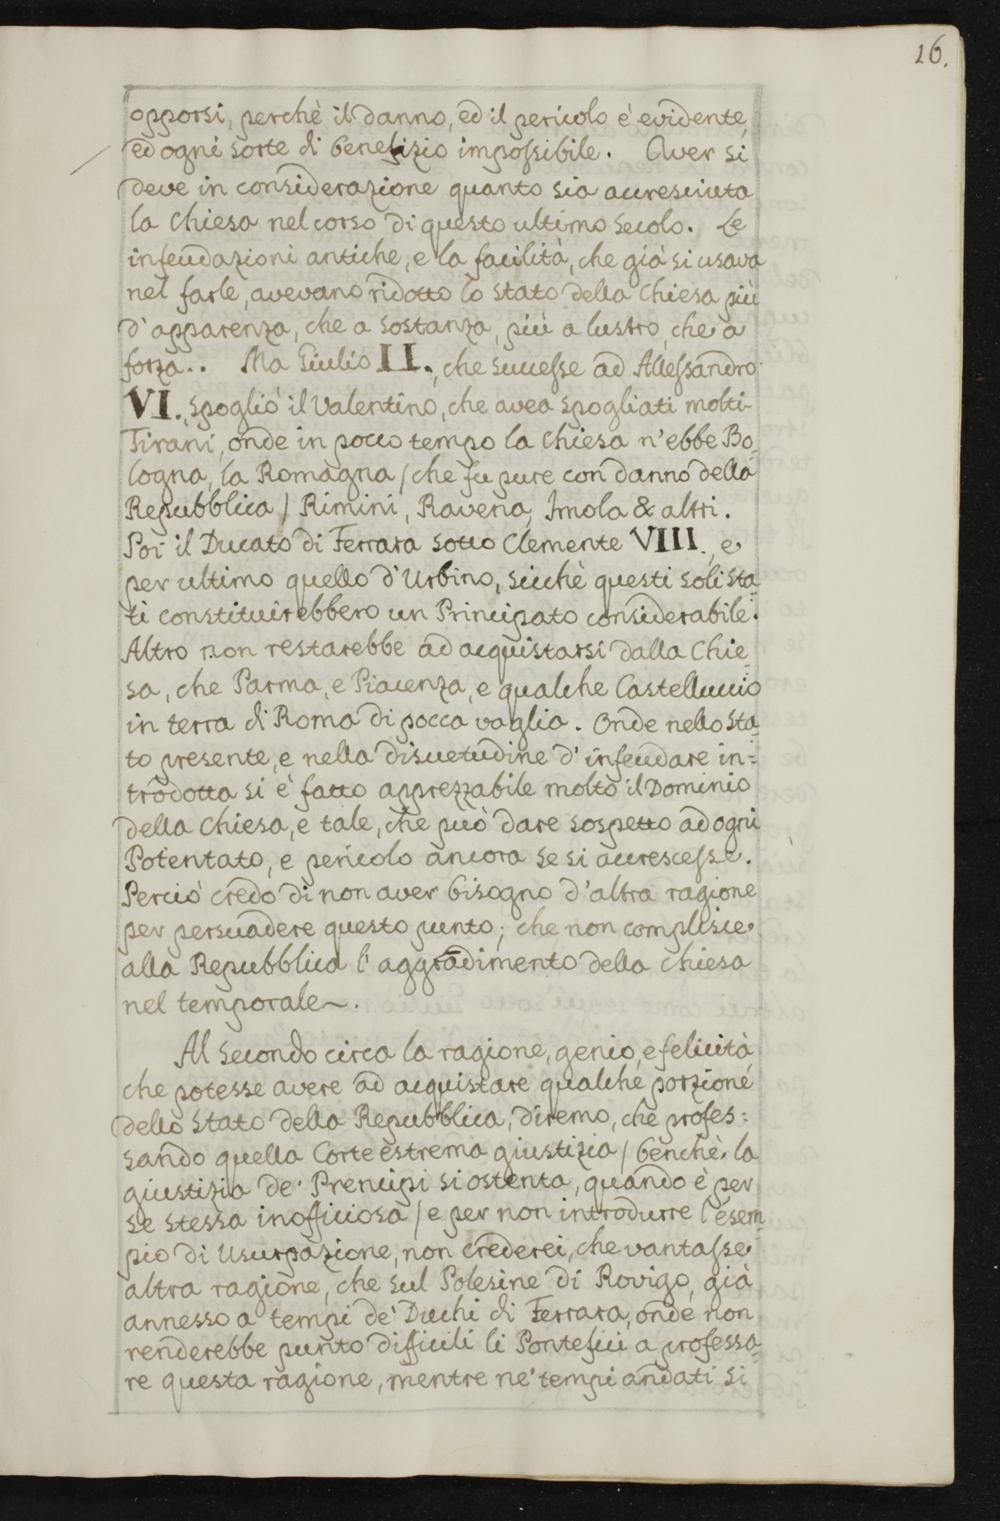 16.
opporsi, perchè il danno, ed il pericolo è evidente,
ed ogni sorte di benefizio impossibile. Aver si
deve in considerazione quanto sia accresciuta
la Chiesa nel corso di questo ultimo secolo. Le
infeudazioni antiche, e la facilità, che già si usava
nel farle, avevano ridotto lo Stato della Chiesa più
d'apparenza, che a sostanza, più a lustro, che a
forza.. Ma Giulio II., che successe ad Allessandro
VI., spogliò il Valentino, che avea spogliati molti
Tirani, onde in pocco tempo la Chiesa n'ebbe Bo-
logna, la Romagna / che fu pure con danno della
Repubblica / Rimini, Ravena, Imola & altri.
Poi il Ducato di Ferrara sotto Clemente VIII., e
per ultimo quello d'Urbino, sicchè questi soli Sta-
ti constituirebbero un Principato considerabile.
Altro non restarebbe ad acquistarsi dalla Chie-
sa, che Parma, e Piacenza, e qualche Castelluccio
in terra di Roma di pocca vaglia. Onde nello Sta-
to presente, e nella disuetudine d'infeudare in=
trodotta si è fatto apprezzabile molto il Dominio
della Chiesa, e tale, che può dare sospetto ad ogni
Potentato, e pericolo ancora se si accrescesse.
Perciò credo di non aver bisogno d'altra ragione
per persuadere questo punto; che non complisce
alla Repubblica l'aggradimento della Chiesa
nel temporale~.
Al secondo circa la ragione, genio, e felicità
che potesse avere ad acquistare qualche porzione
dello Stato della Repubblica, diremo, che profes=
sando quella Corte estrema giustizia / benchè la
giustizia de' Prencipi si ostenta, quando è per
se stessa inofficiosa / e per non introdurre l'esem-
pio di Usurpazione, non crederei, che vantasse
altra ragione, che sul Polesine di Rovigo, già
annesso a tempi de' Duchi di Ferrara, onde non
renderebbe punto difficili li Pontefici a professa-
re questa ragione, mentre ne' tempi andati si